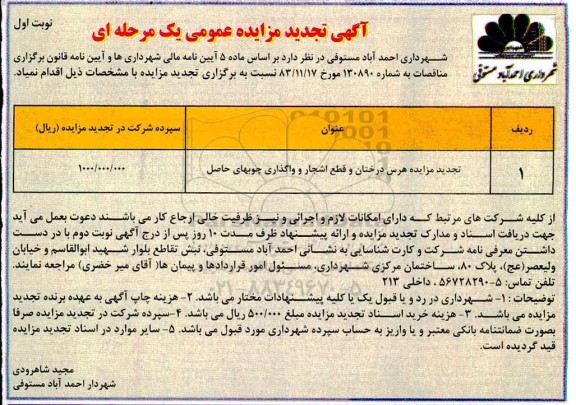 نوبت اول
آگهی تجدید مزایده عمومی یک مرحله ای
شهرداری احمد آباد مستوفی
شهرداری احمد آباد مستوفی در نظر دارد بر اساس ماده ۵ آیین نامه مالی شهرداری ها و آیین نامه قانون برگزاری
مناقصات به شماره ۱۳۰۸۹۰ مورخ ۸۳/۱۱/۱۷ نسبت به برگزاری تجدید مزایده با مشخصات ذیل اقدام نماید.
ردیف عنوان سپرده شرکت در تجدید مزایده (ریال)
۱ تجدید مزایده هرس درختان و قطع اشجار و واگذاری چوبهای حاصل ۱۰۰۰/۰۰۰/۰۰۰
از کلیه شرکت های مرتبط که دارای امکانات لازم و اجرائی و نیز ظرفیت خالی ارجاع کار می باشند دعوت بعمل می آید
جهت دریافت اسناد و مدارک تجدید مزایده و ارائه پیشنهاد ظرف مدت ۱۰ روز پس از درج آگهی نوبت دوم با در دست
داشتن معرفی نامه شرکت و کارت شناسایی به نشانی احمد آباد مستوفی، نبش تقاطع بلوار شهید ابوالقاسم و خیابان
ولیعصر(عج)، پلاک ۸۰، ساختمان مرکزی شهرداری، مسئول امور قراردادها و پیمان ها( آقای میر خضری) مراجعه نمایند.
تلفن تماس: ۵-۵۶۷۲۸۲۹۰ ، داخلی ۲۱۳
توضیحات : ۱- شهرداری در رد و یا قبول یک یا کلیه پیشنهادات مختار می باشد. ۲- هزینه چاپ آگهی به عهده برنده تجدید
مزایده می باشد. ۳- هزینه خرید اسناد تجدید مزایده مبلغ ۵۰۰/۰۰۰ ریال می باشد. ۴-سپرده شرکت در تجدید مزایده صرفا
بصورت ضمانتنامه بانکی معتبر و یا واریز به حساب سپرده شهرداری مورد قبول می باشد. ۵- سایر موارد در اسناد تجدید مزایده
قید گردیده است.
مجید شاهرودی
شهردار احمد آباد مستوفی